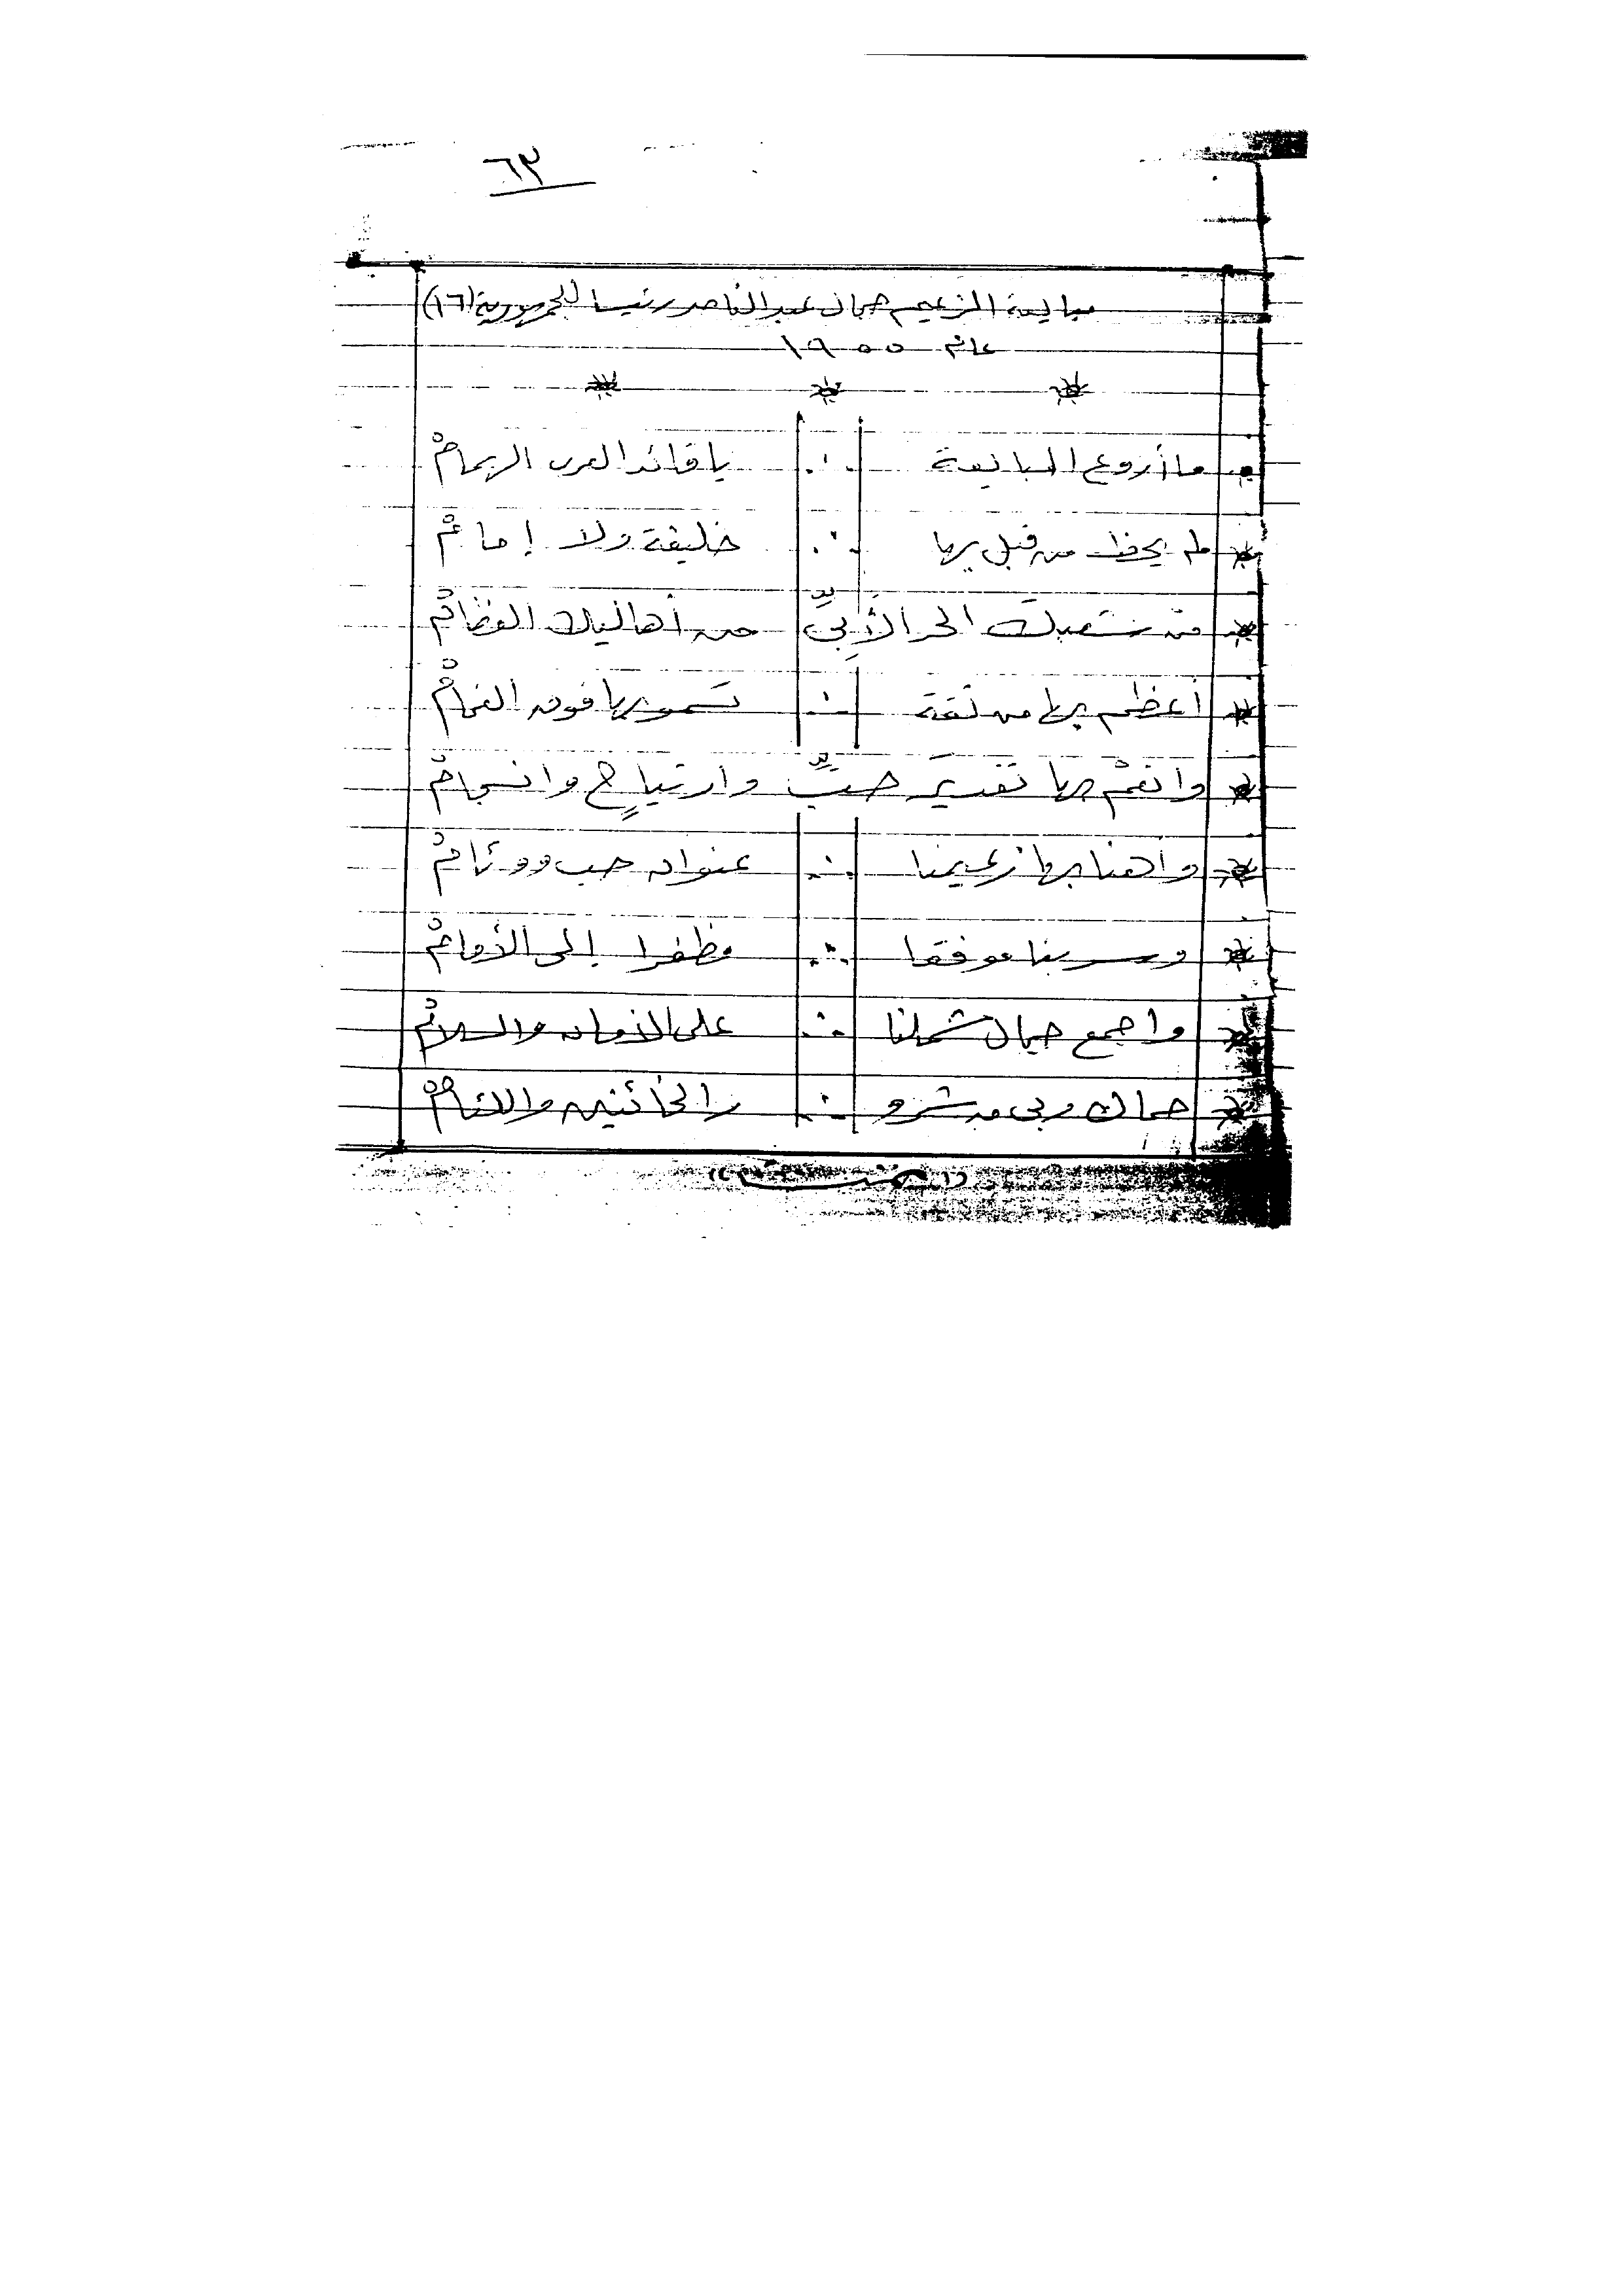 ٦٣
مبايعة الزعيم جمال عبد الناصر رئيسا للجمهورية (١٦)
عام ١٩٥٥
* * *
* ما أروع المبايعة ∴ يا قائد العرب الهمامْ
* لم يحظ من قبل بها ∴ خليفة ولا إمامْ
* من شعبك الحر الأبيِّ من أهاليك العظامْ
* أعظم بها من ثقة ∴ تسمو بها فوق الغمامْ
* وانعمْ بها تقديرَ حبٍّ وارتياحٍ وانسجامْ
* واهنا بها زعيمنا ∴ عنوان حب ووئامْ
* وسر بنا موفقا ∴ مظفرا إلى الأمامْ
* واجمع جمال شملنا ∴ على الأمان والسلامْ
* جمال ربى من شرو ∴ ر الخائنين واللئامْ